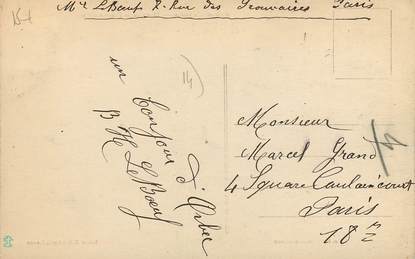 Mr LeBoeuf 2 Rue des Prouvaires Paris
un
bonjour d'Orbec
B
M LeBoeuf
14
Monsieur
Marcel Grand
4 Square Caulaincourt
Paris
18e